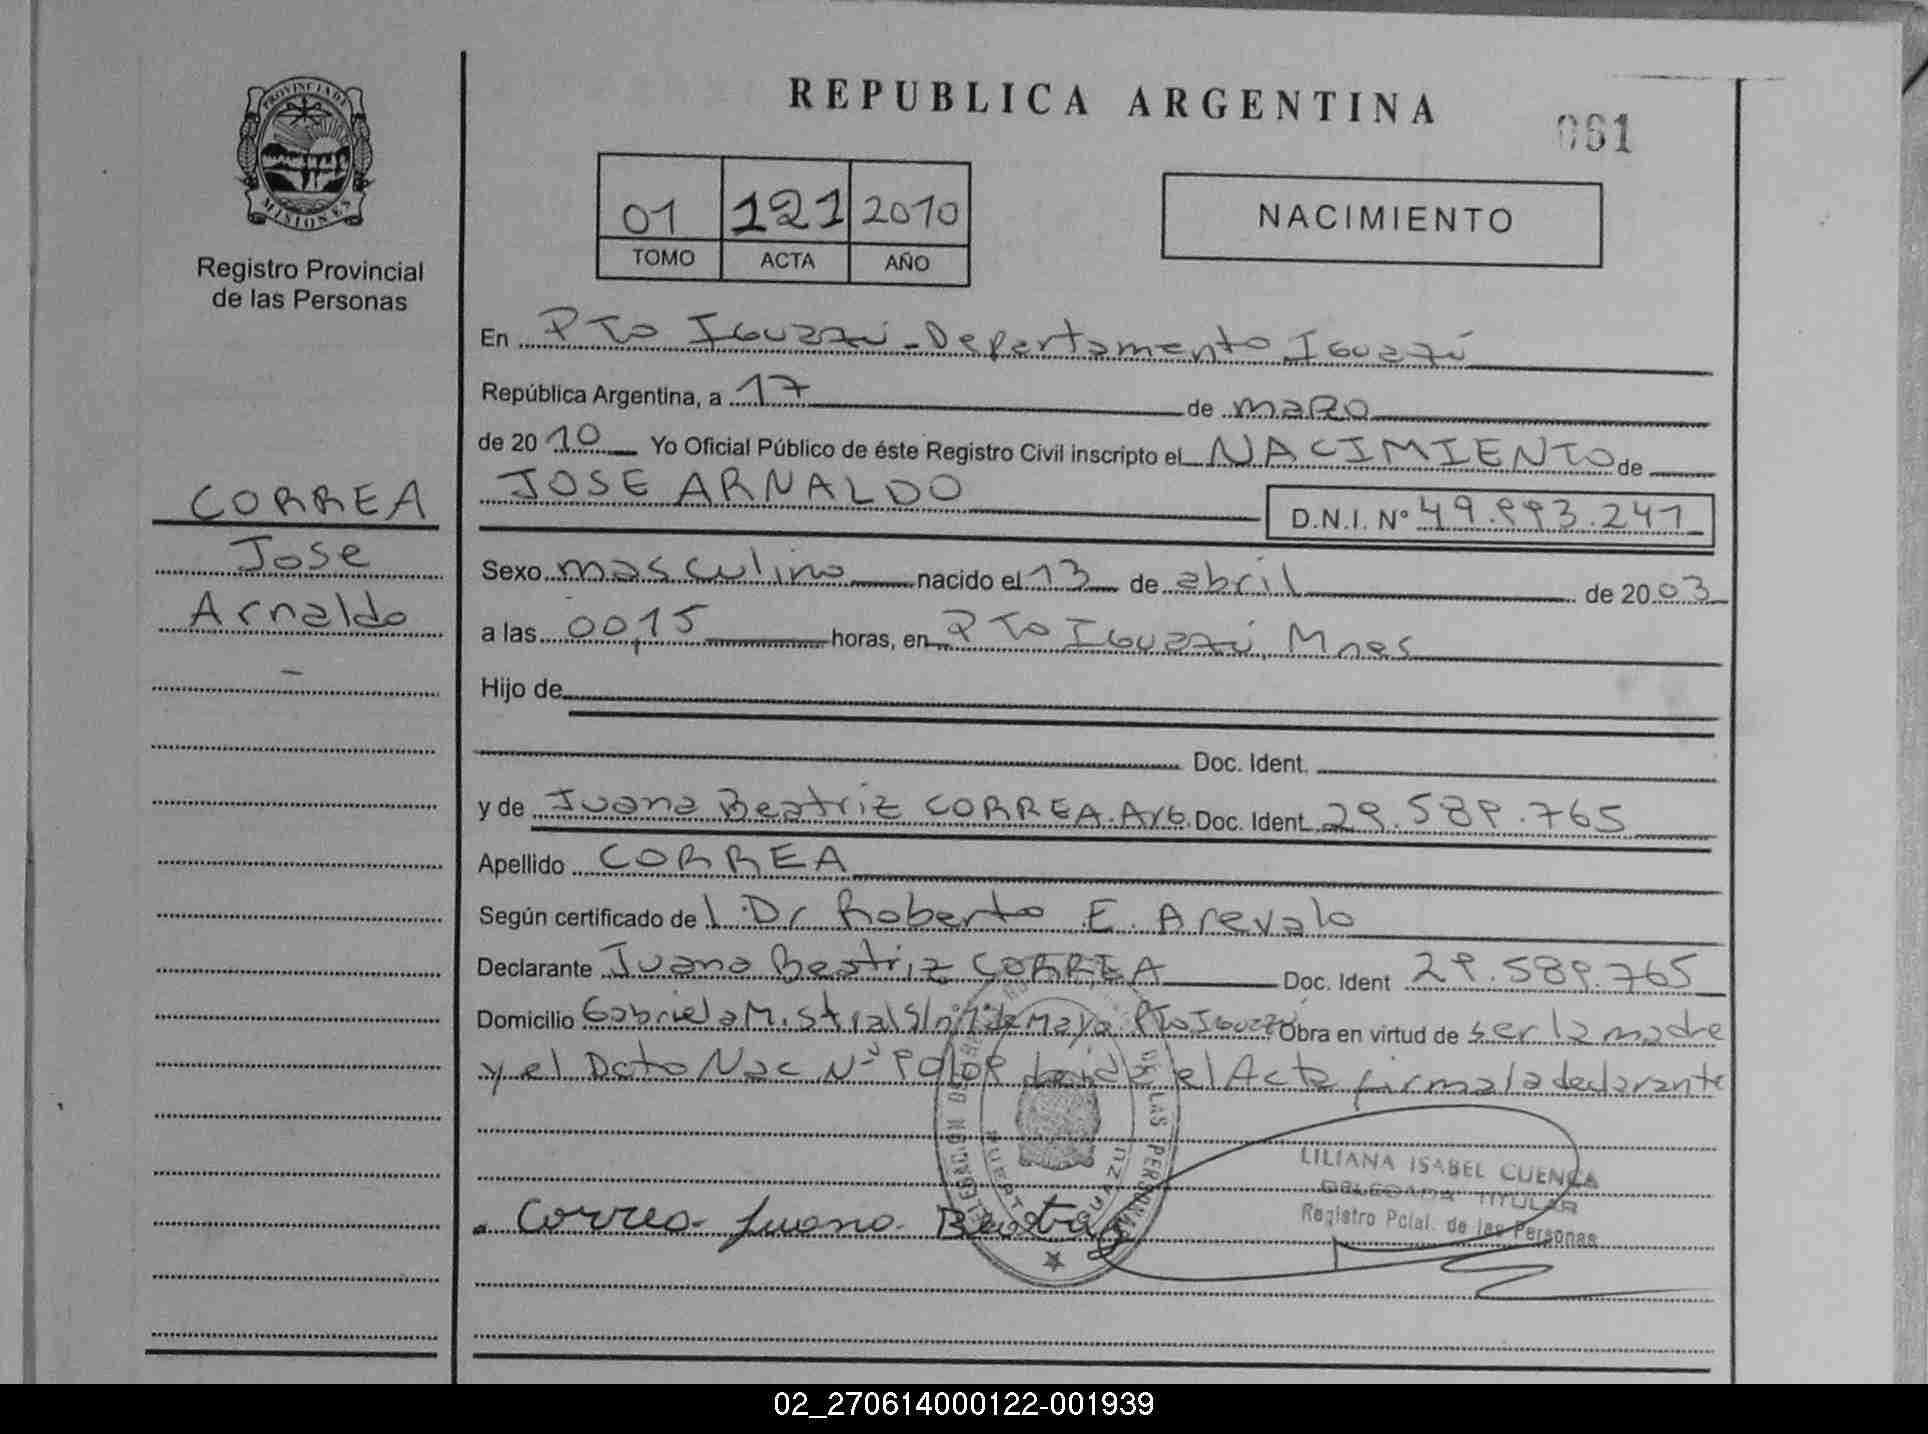 REPUBLICA ARGENTINA
061
PROVINCIA DE
MISIONES
Registro Provincial
de las Personas
01 121 2010
TOMO ACTA AÑO
NACIMIENTO
En Pto Iguazú - Departamento Iguazú
República Argentina, a 17 de marzo
de 2010 Yo Oficial Público de éste Registro Civil inscripto el NACIMIENTO de
JOSE ARNALDO
D.N.I. Nº 49.993.241
CORREA
Jose
Arnaldo
-
Sexo masculino nacido el 13 de abril de 2003
a las 00,15 horas, en Pto Iguazú, Mnes
Hijo de
Doc. Ident.
y de Juana Beatriz CORREA. Arg. Doc. Ident. 29.589.765
Apellido CORREA
Según certificado de l. Dr Roberto E. Arevalo
Declarante Juana Beatriz CORREA Doc. Ident 29.589.765
Domicilio Gabriela Mistral S/nº 1º de Mayo Pto Iguazú Obra en virtud de ser la madre
y el Dcto Nac Nº el Acta firma la declarante
DELEGACION DE LAS PERSONAS
PUERTO IGUAZU
LILIANA ISABEL CUENCA
DELEGADA TITULAR
Registro Pcial. de las Personas
Correa Juana Beatriz
02_270614000122-001939